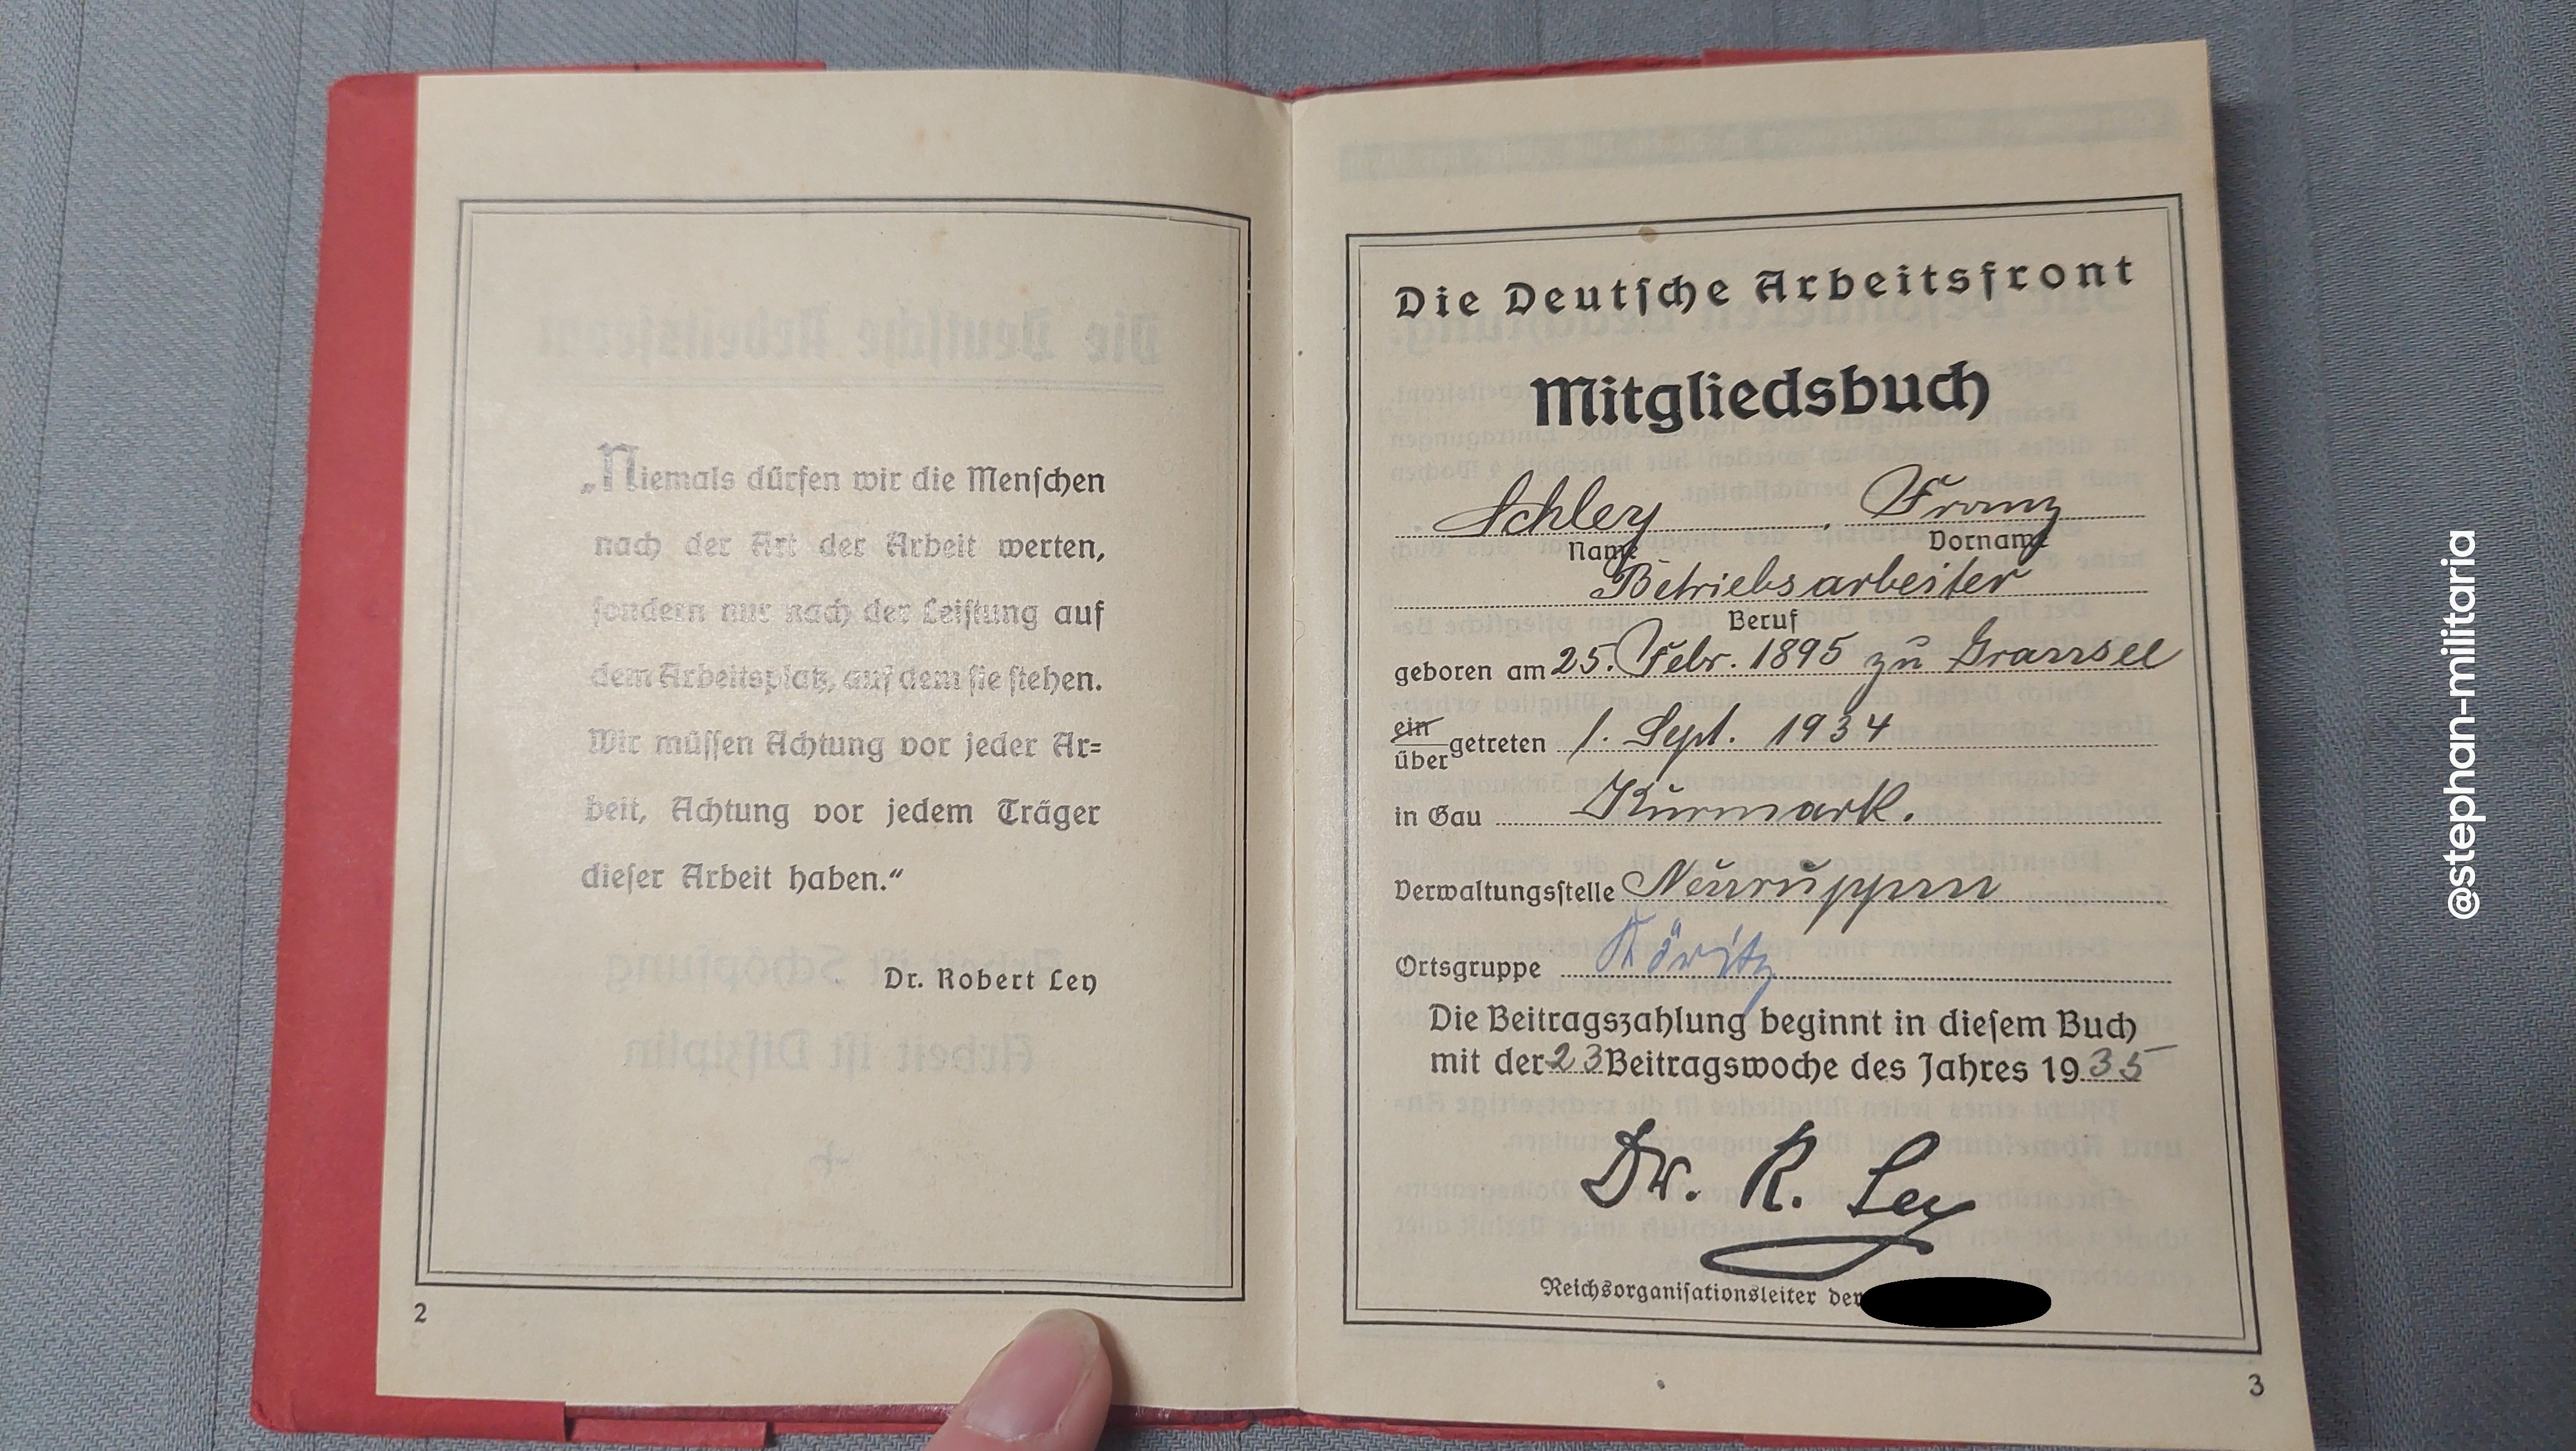 „Niemals dürfen wir die Menſchen
nach der Art der Arbeit werten,
ſondern nur nach der Leiſtung auf
dem Arbeitsplatz, auf dem ſie ſtehen.
Wir müſſen Achtung vor jeder Ar=
beit, Achtung vor jedem Träger
dieſer Arbeit haben.“
Dr. Robert Ley
2
Die Deutſche Arbeitsfront
Mitgliedsbuch
Schley, Franz
Name Vorname
Betriebsarbeiter
Beruf
geboren am 25. Febr. 1895 zu Gransee
ein
über getreten 1. Sept. 1934
in Gau Kurmark.
Verwaltungsſtelle Neuruppin
Ortsgruppe Köritz
Die Beitragszahlung beginnt in dieſem Buch
mit der 23 Beitragswoche des Jahres 1935
Dr. R. Ley
Reichsorganiſationsleiter der
3
@stephan-militaria